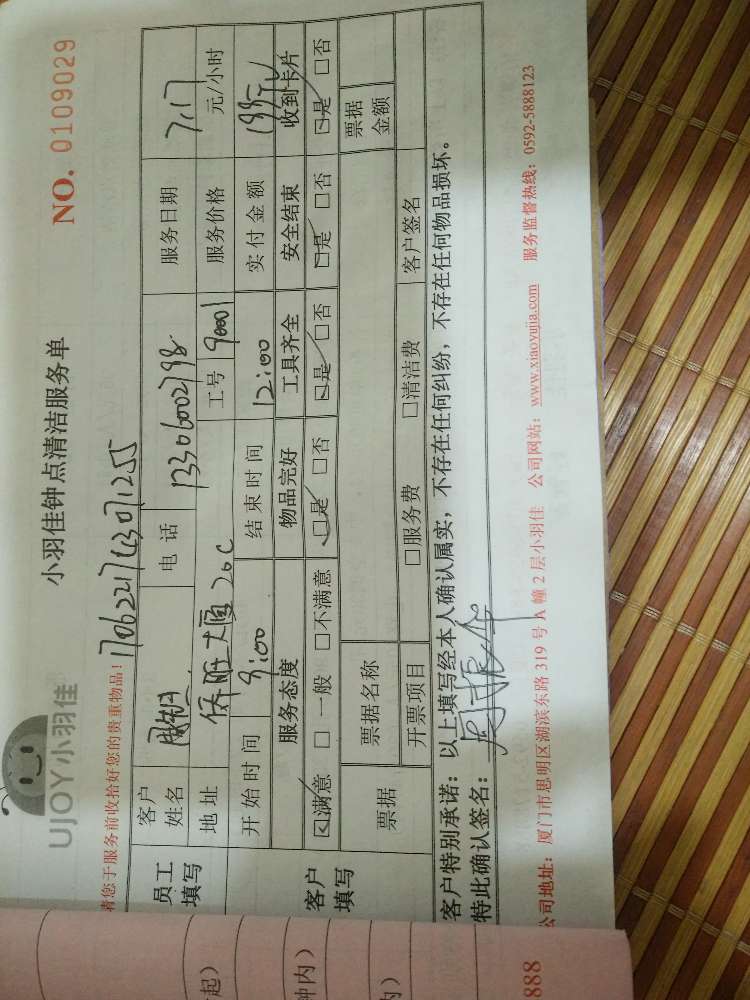 UJOY小羽佳
小羽佳钟点清洁服务单
NO. 0109029
请您于服务前收拾好您的贵重物品!
员工填写
客户姓名
电话 13306002798
服务日期 7.17
地址 侨胜大厦20C
工号 90001
服务价格 元/小时
开始时间 9:00
结束时间 12:00
实付金额
客户填写
服务态度 物品完好 工具齐全 安全结束 收到卡片
☑满意 □一般 □不满意 ☑是 □否 ☑是 □否 ☑是 □否 ☑是 □否
票据 票据名称 票据金额
开票项目 □服务费 □清洁费 客户签名
客户特别承诺:以上填写经本人确认属实,不存在任何纠纷,不存在任何物品损坏。
特此确认签名:
公司地址:厦门市思明区湖滨东路319号A幢2层小羽佳 公司网站:www.xiaoyujia.com 服务监督热线:0592-5888123
起)
钟内)
内)
888